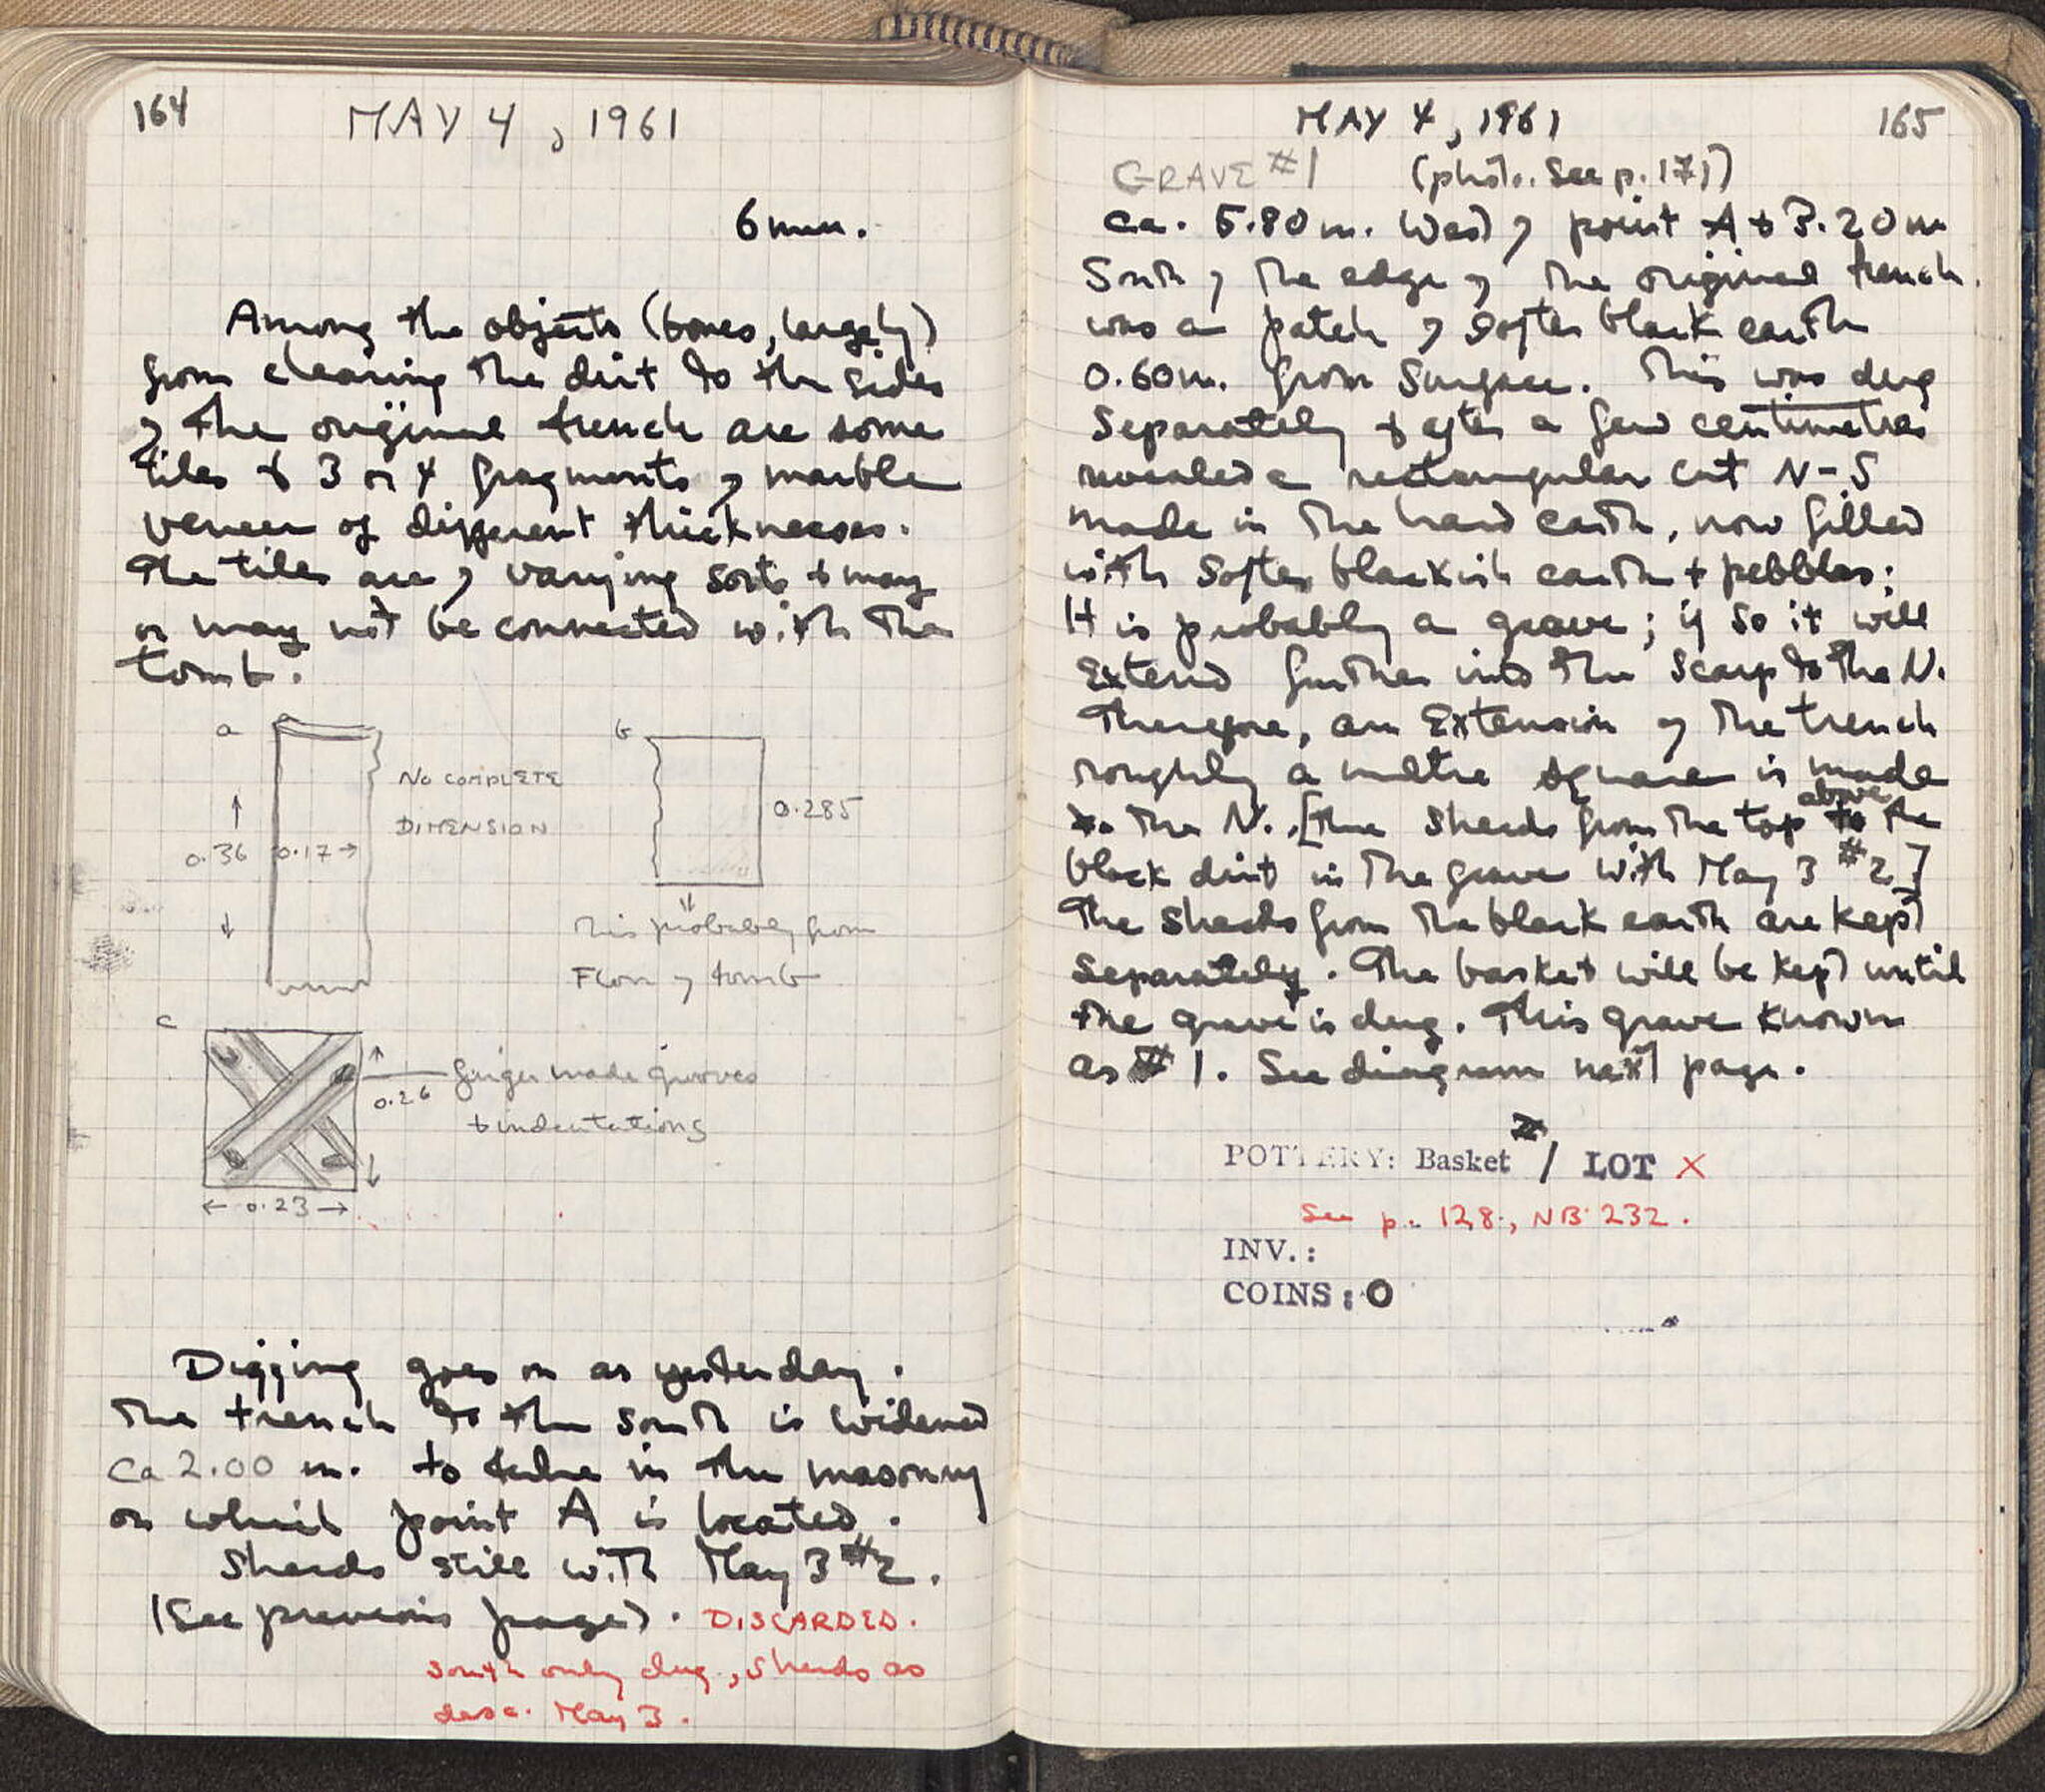 164
MAY 4, 1961
6 mm.
Among the objects (bones, largely)
from clearing the dirt to the sides
of the original trench are some
tiles & 3 or 4 fragments of marble
veneer of different thicknesses.
The tiles are of varying sorts & may
or may not be connected with the
tomb.
a
b
NO COMPLETE
DIMENSION
0.285
0.36 0.17→
This probably from
Floor of tomb
c
finger made grooves
0.26
& indentations
← 0.23 →
Digging goes on as yesterday.
The trench to the south is widened
ca 2.00 m. to take in the masonry
on which point A is located.
Sherds still with May 3 #2.
(See previous page). DISCARDED.
South only dug, sherds as
desc. May 3.
MAY 4, 1961
165
GRAVE #1 (photo. See p. 171)
ca. 5.80 m. West of point A & 3.20 m
South of the edge of the original trench
was a patch of softer black earth
0.60 m. from surface. This was dug
separately & after a few centimetres
revealed a rectangular cut N-S
made in the hard earth, now filled
with softer blackish earth + pebbles;
It is probably a grave; if so it will
extend further into the scarp to the N.
Therefore, an extension of the trench
roughly a metre square is made
to the N. [The sherds from the top above to the
black dirt in the grave with May 3 #2.]
The sherds from the black earth are kept
separately. The basket will be kept until
the grave is dug. This grave known
as #1. See diagram next page.
POTTERY: Basket #1 LOT X
See p. 128, NB 232.
INV.:
COINS: 0